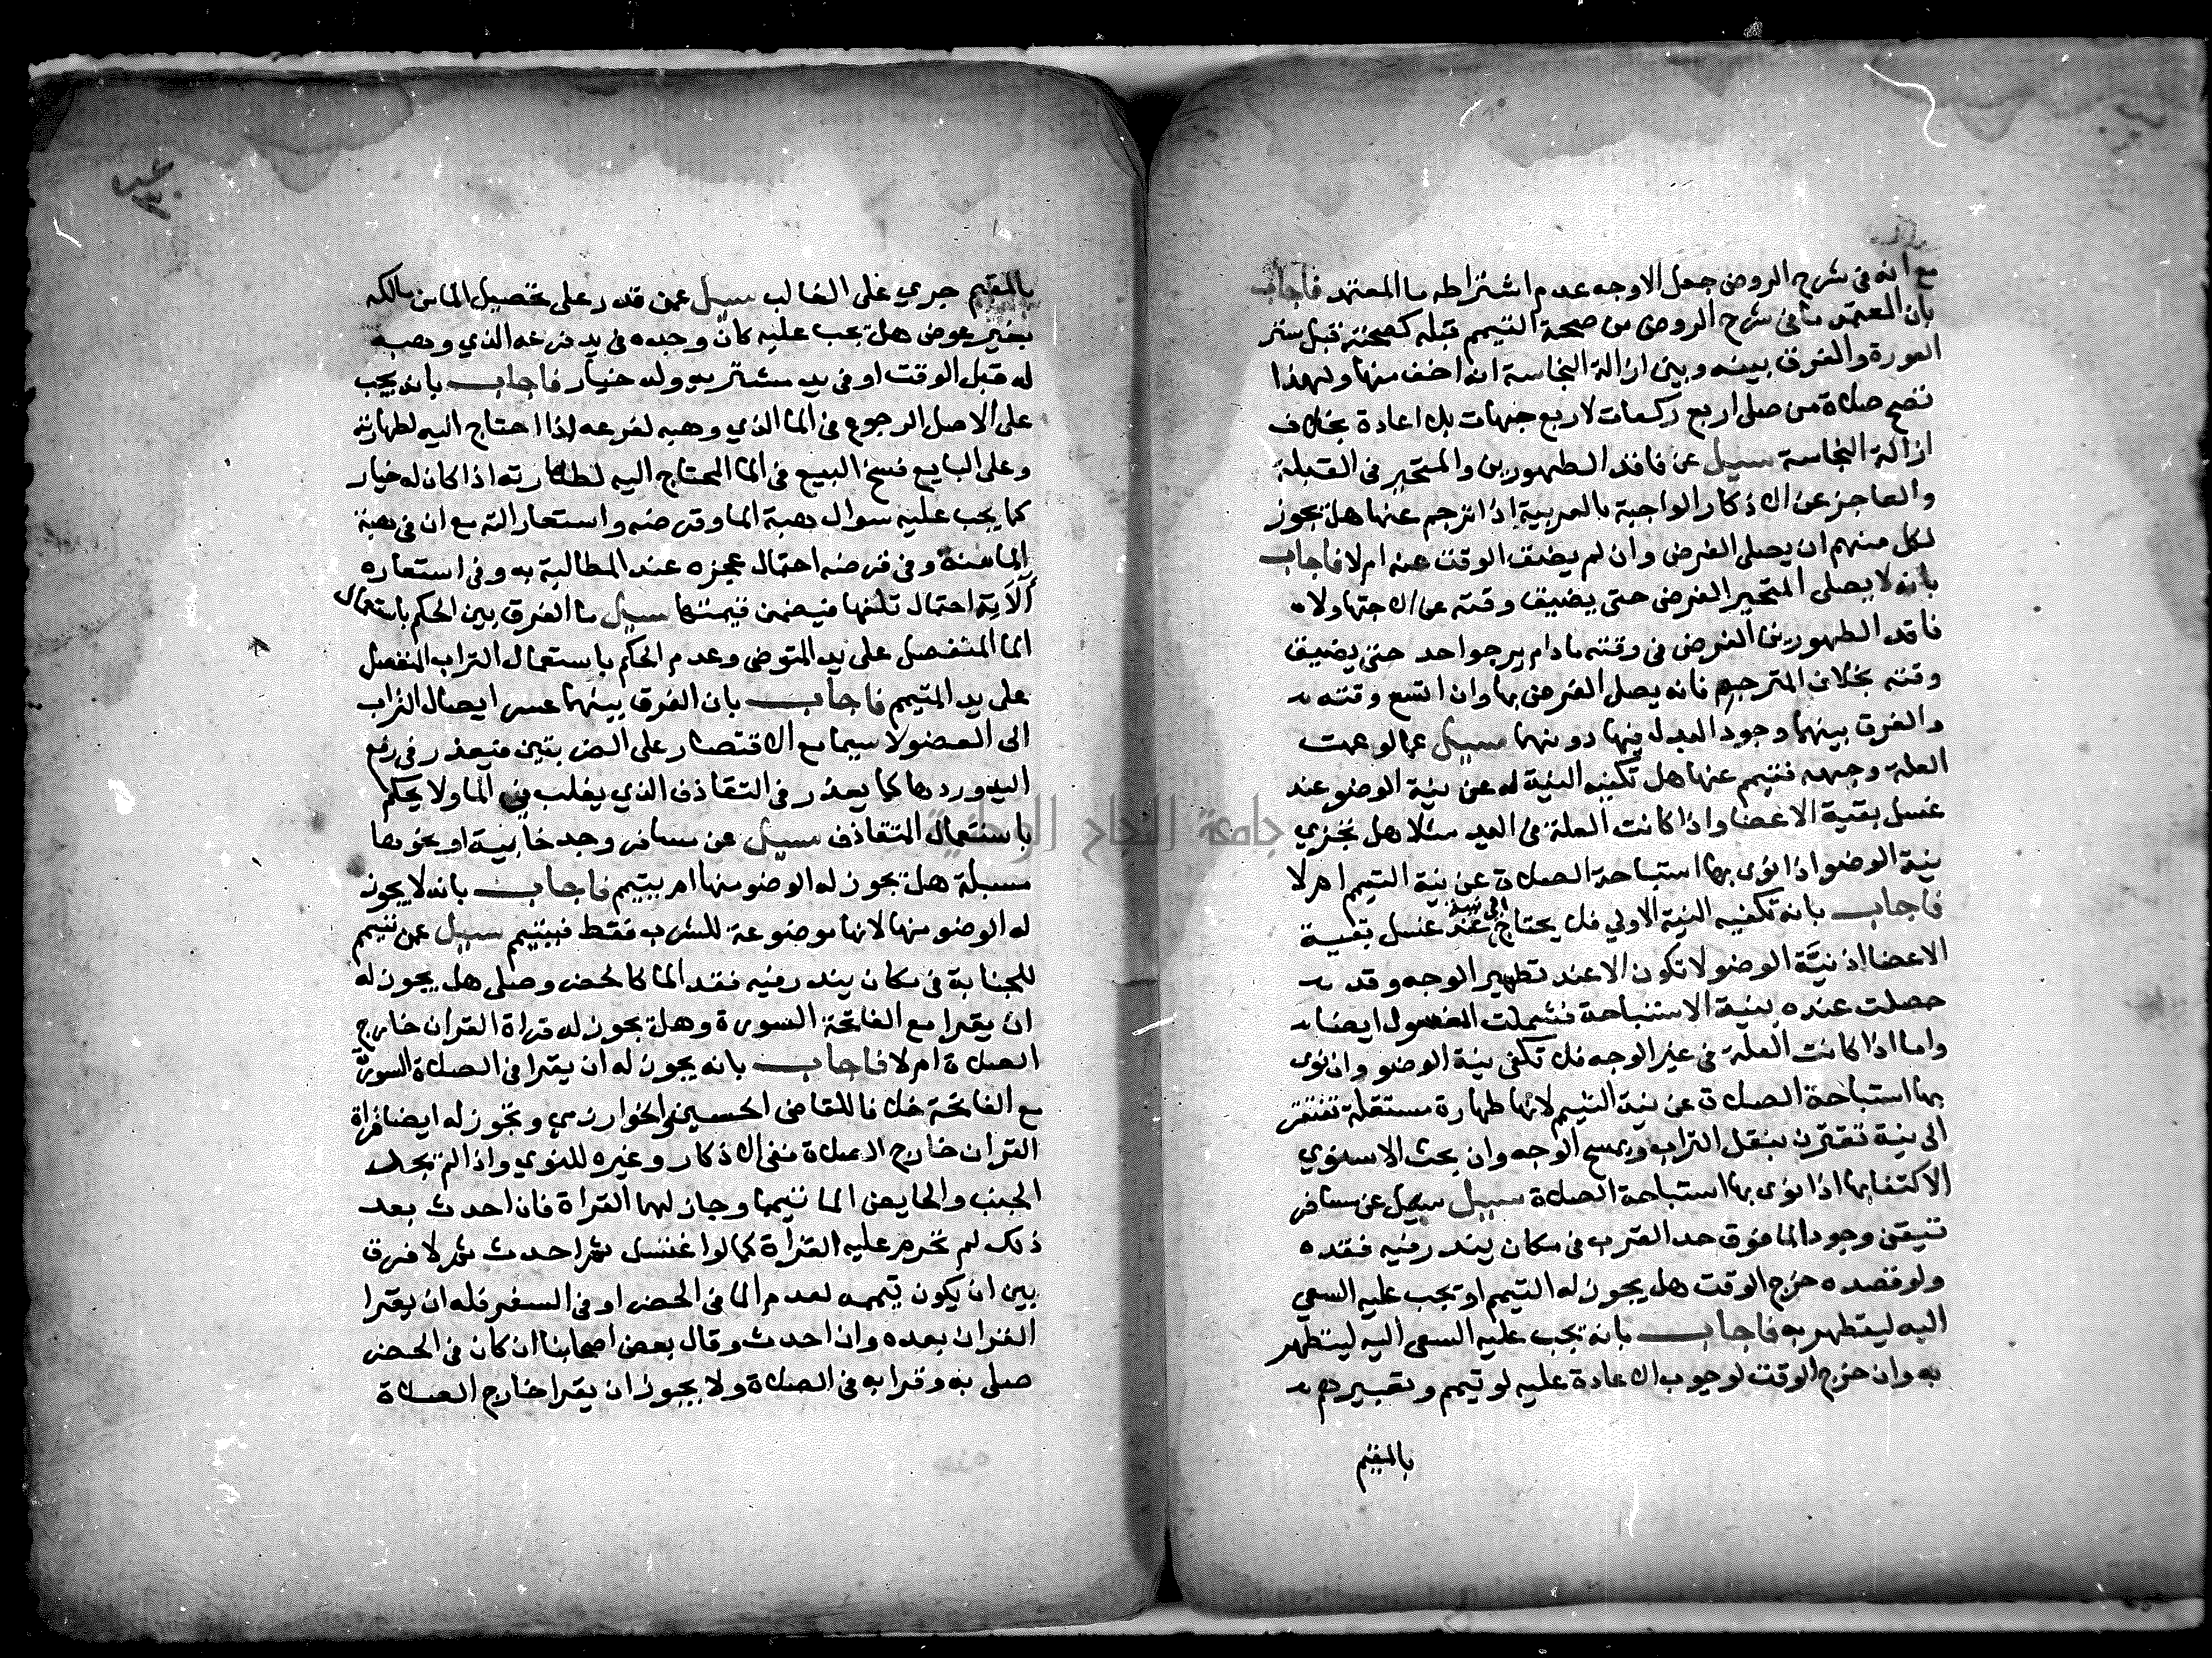 مع انه في شرح الروض جعل الاوجه عدم اشتراطه ما المعتمد فاجاب
بان المعتمد ما في شرح الروض من صحة التيمم قبله كصحته قبل ستر
العورة والفرق بينه وبين ازالة النجاسة انه اخف منها ولهذا
تصح صلاة من صلى اربع ركعات لاربع جهات بلا اعادة بخلاف
ازالة النجاسة سيل عن فاقد الطهورين والمتحير في القبلة
والعاجز عن الاذكار الواجبة بالعربية اذا ترجم عنها هل يجوز
لكل منهم ان يصلى الفرض وان لم يضق الوقت عنه ام لا فاجاب
بانه لا يصلى المتحير الفرض حتى يضيق وقته عن الاجتهاد ولا
فاقد الطهورين الفرض في وقته مادام يرجوا احد حتى يضيق
وقته بخلاف المترجم فانه يصلى الفرض بها وان اتسع وقته
والفرق بينهما وجود البدل فيها دونهما سيل عما لو عمت
العلة وجهه فتيمم عنها هل تكفيه النية له عن نية الوضو عند
غسل بقية الاعضا واذا كانت العلة في اليد مثلا هل تجزي
نية الوضو اذا نوى بها استباحة الصلاة عن نية التيمم ام لا
فاجاب بانه تكفيه النية الاولي فلا يحتاج الى نية عند غسل بقية
الاعضا اذ نيَّة الوضو لا تكون الا عند تطهير الوجه وقد
حصلت عنده بنية الاستباحة فشملت المغسول ايضا
واما اذا كانت العلة في غير الوجه فلا تكفي نية الوضو وان نوى
بها استباحة الصلاة عن نية التيمم لانها طهارة مستقلة تفتقر
الى نية تقترن بنقل التراب وبمسح الوجه وان بحث الاسنوي
الاكتفا بها اذا نوى بها استباحة الصلاة سيل سيل عن مسافر
تيقن وجود الما فوق حد القرب في مكان يندر فيه فقده
ولو قصده خرج الوقت هل يجوز له التيمم او يجب عليه السعي
اليه ليتطهر به فاجاب بانه يجب عليه السعى اليه ليتطهر
به وان خرج الوقت لوجوب الاعادة عليه لو تيمم وتعبيرهم
بالمقيم
بالمقيم جري على الغالب سيل عمن قدر على تحصيل الما من مالكه
بغير عوض هل يجب عليه كان وجده في يد فرعه الذي وهبه
له قبل الوقت او في يد مشتريه وله خيار فاجاب بانه يجب
على الاصل الرجوع في الما الذي وهبه لفرعه اذا احتاج اليه لطهارته
وعلى البايع فسخ البيع في الما المحتاج اليه لطهارته اذا كان له خيار
كما يجب عليه سوال هبة الما وقرضه واستعارالته مع ان في هبة
الما منة وفي قرضه احتمال عجزه عند المطالبة به وفي استعاره
الآلآية احتمال تلفها فيضمن قيمتها سيل ما الفرق بين الحكم باستعمال
الما المنفصل على يد المتوضى وعدم الحكم باستعمال التراب المنفصل
على يد المتيمم فاجاب بان الفرق بينهما عسر ايصال التراب
الى العضو لاسيما مع الاقتصار على الضربتين فيعذر في رفع
اليد وردها كما يعذر في التقاذف الذي يغلب في الما ولا يحكم
باستعمال المتقاذف سيل عن مسافر وجد خابية او نحوها
مسبلة هل يجوز له الوضو منها ام يتيمم فاجاب بانه لا يجوز
له الوضو منها لانها موضوعة للشرب فقط فيتيمم سيل عمن تيمم
للجنابة في مكان يندر فيه فقد الما كالحضر وصلى هل يجوز له
ان يقرا مع الفاتحة السورة وهل يجوز له قراة القران خارج
الصلاة ام لا فاجاب بانه يجوز له ان يقرا في الصلاة السورة
مع الفاتحة خلافا للقاضى الحسين والخوارزمي وتجوز له ايضا قراة
القران خارج الصلاة ففي الاذكار وغيره للنوي واذا لم يجد
الجنب والحايض الما تيمما وجاز لهما القراة فان احدث بعد
ذلك لم تحرم عليه القرأة كما لو اغتسل ثم احدث ثم لا فرق
بين ان يكون تيممه لعدم الما في الحضر او في السفر فله ان يقرا
القران بعده وان احدث وقال بعض اصحابنا ان كان في الحضر
صلى به وقرا به في الصلاة ولا يجوز ان يقرا خارج الصلاة
جامعة النجاح الوطنية